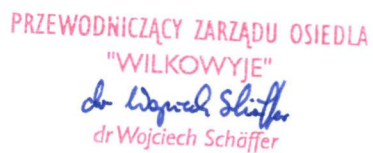 PRZEWODNICZĄCY ZARZĄDU OSIEDLA
"WILKOWYJE"
dr Wojciech Schäffer
dr Wojciech Schäffer